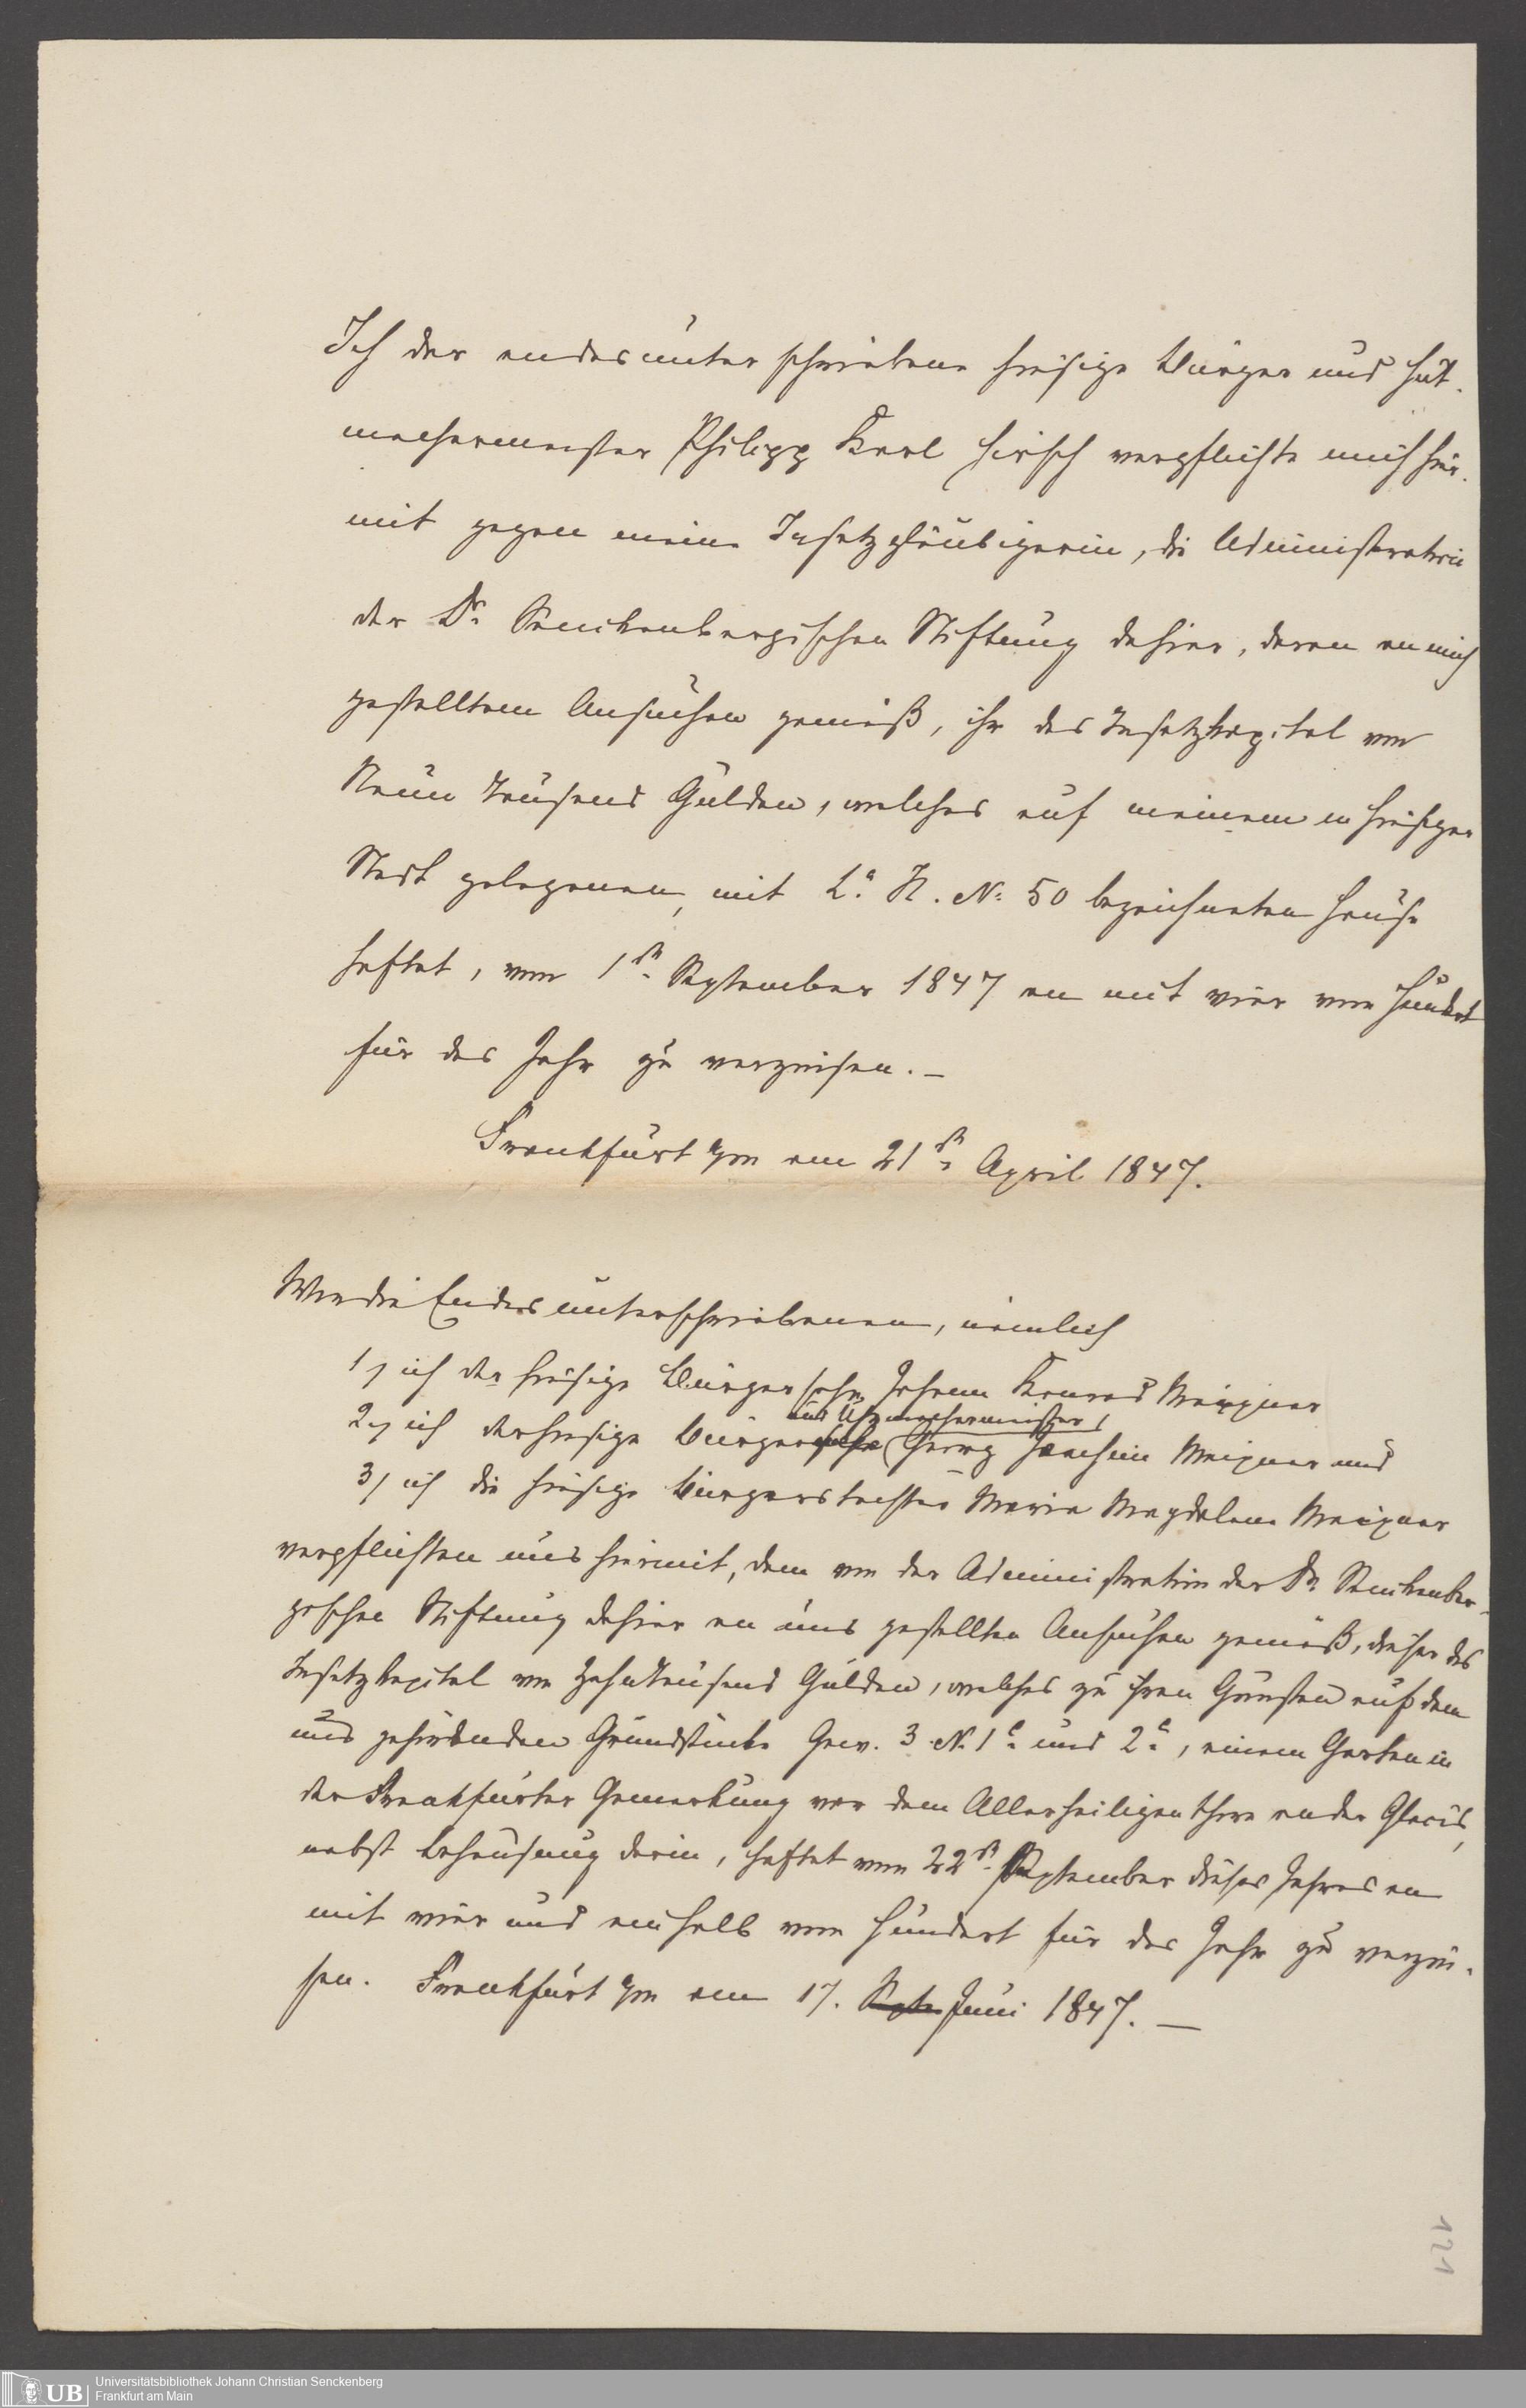 Ich der endesunterschriebene hiesige Bürger und Hut-
machermeister Philipp Karl Hirsch verpflichte mich hier-
mit gegen meine Insatzgläubigerin, die Administration
der Dr. Senckenbergischen Stiftung dahier, deren an mich
gestelltem Ansuchen gemäß, ihr das Insatzkapital von
Neun Tausend Gulden, welches auf meinem in hiesiger
Stadt gelegenen, mit La. H. No. 50 bezeichneten Hause
haftet, vom 1ten September 1847 an mit vier vom Hundert
für das Jahr zu verzinsen. —
Frankfurt a/m am 21ten April 1847.
Wir die Endesunterschriebenen, nämlich
1, ich der hiesige Bürgersohn Johann Konrad Meixner
und Uhrmachermeister,
2, ich der hiesige Bürgersohn Georg Joachim Meixner und
3, ich die hiesige Bürgerstochter Maria Magdalena Meixner
verpflichten uns hiermit, dem von der Administration der Dr. Senckenber-
gischen Stiftung dahier an uns gestellten Ansuchen gemäß, dieser das
Insatzkapital von Zehn Tausend Gulden, welches zu ihren Gunsten auf dem
uns gehörenden Grundstücke Gew. 3 No. 1c. und 2c., einem Garten in
der Frankfurter Gemarkung vor dem Allerheiligenthore an der Glacis,
nebst Behausung darin, haftet vom 22ten September dieses Jahres an
mit vier und einhalb vom Hundert für das Jahr zu verzin-
sen. Frankfurt a/m am 17. Septe Juni 1847. —
121
UB
Universitätsbibliothek Johann Christian Senckenberg
Frankfurt am Main